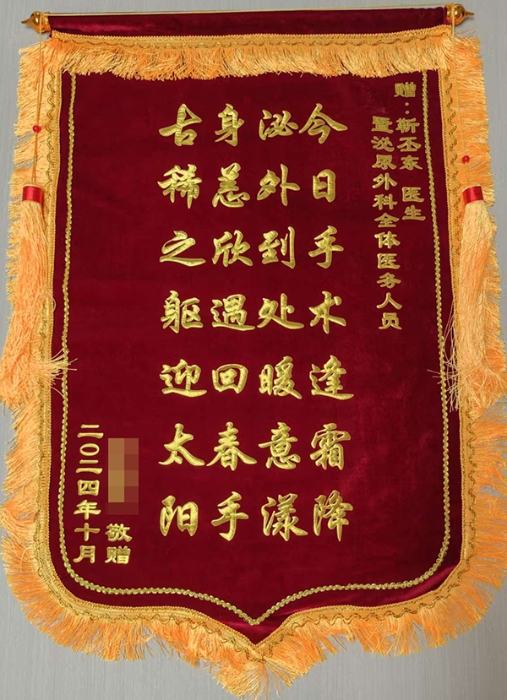 赠：靳丕东 医生
暨泌尿外科全体医务人员
今日手术逢霜降
泌外到处暖意漾
身恙欣遇回春手
古稀之躯迎太阳
敬赠
二〇二四年十月